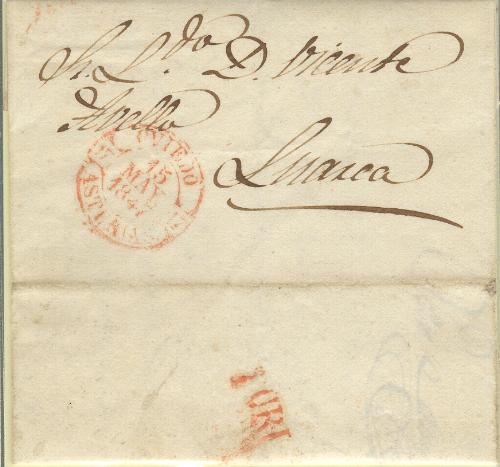 Sr. L.do D. Vicente
Avello
Luarca
OVIEDO
15
MAY
1847
ASTURIAS